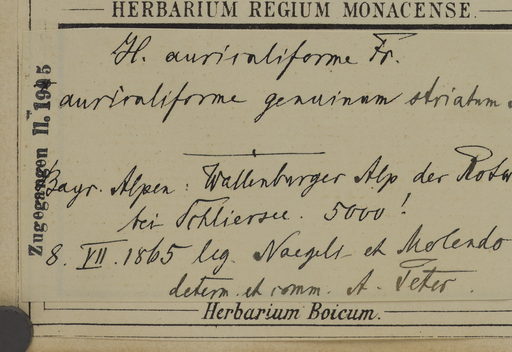 HERBARIUM REGIUM MONACENSE.
H. auriculiforme Fr.
auriculiforme genuinum striatum
Bayr. Alpen: Wallenburger Alp der Rotw
bei Schliersee. 5000!
8. VII. 1865 leg. Naegeli et Molendo
determ. et comm. A. Peter.
Herbarium Boicum.
Zugegangen II. 1915